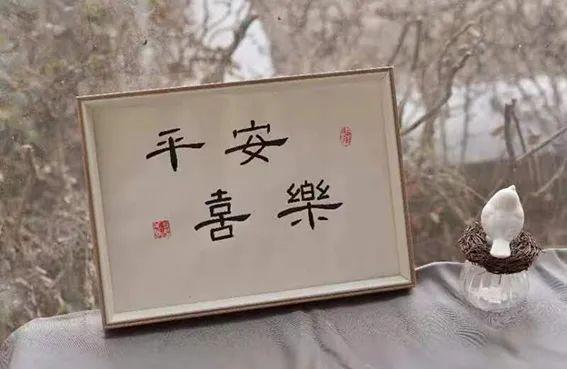 平安
喜樂